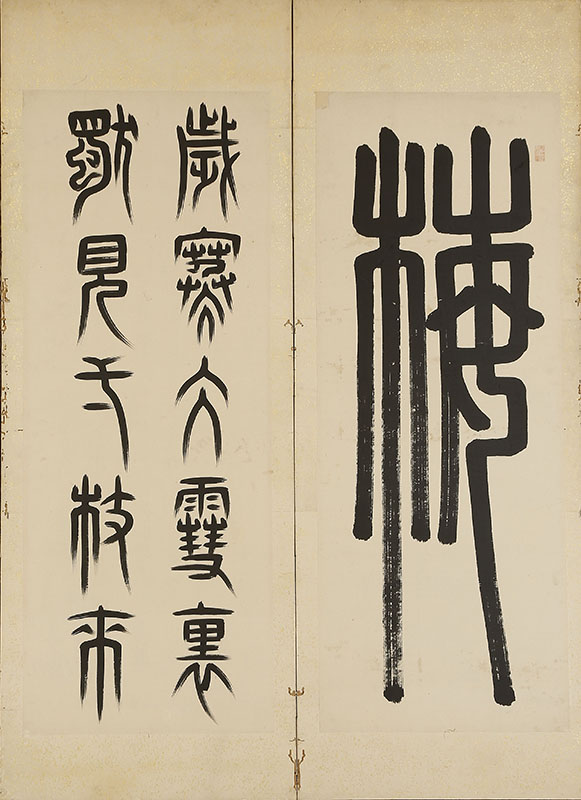 梅
歲寒大雪裏
獨見枝来